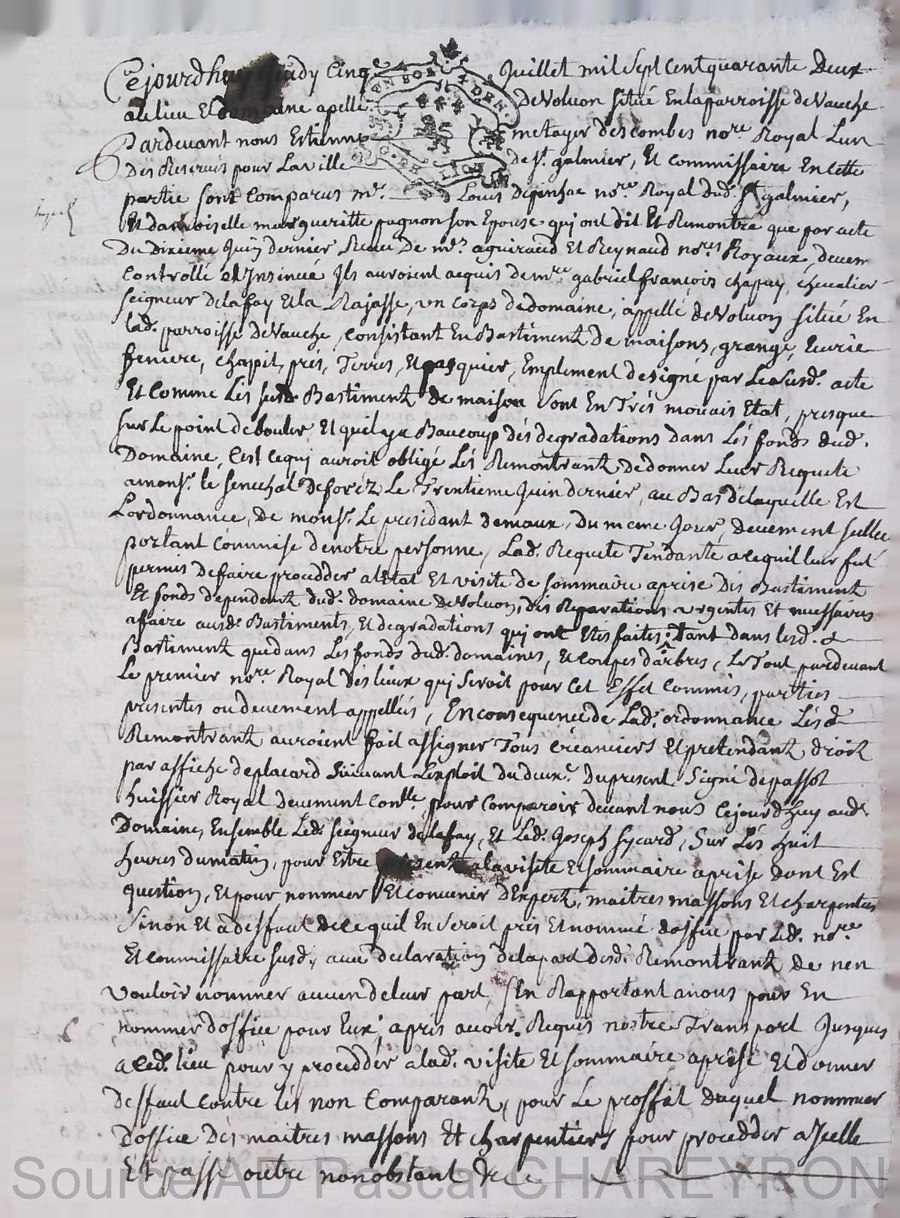 Cejourdhuy Jeudy Cinq Juillet mil Sept Cent quarante Deux
au lieu Et domaine apellé DeVoluon Situé En la parroisse de Vauche
Pardevant nous Etienne metayer Descombes no.re Royal L'un
Des Reservés pour La ville de S.t galmier, Et commissaire En cette
partie sont Comparus m.re Louis no.re Royal dud. S.t galmier,
Et damoiselle margueritte pugnon son Epouse qui ont dit Et Remontré que par acte
Du Dixieme Juin dernier Receu De m.rs aguiraud Et Reynaud no.res Royaux, deuem
Controllé et Insinué Ils auroient acquis de m.re gabriel françois chapuy, chevalier
Seigneur De la fay Et la Rajasse, un Corps de domaine, appellé deVoluon Situé En
lad. parroisse deVauche, Consistant En Bastiment de maisons, grange, Ecurie
feniere, chapit, prés, Terres, Et pasquier, Emplement designé par Le susd. acte
Et Comme Les susd. Bastiment de maison sont En Trés mouais Etat, presque
sur Le point de bouler Et quil y a Baucoup dés degradations dans Lés fonds dud.
Domaine, C'est ce qui auroit obligé Lés Remontrant De donner Leur Requete
a mons.r le senechal De foréz Le Trentieme Juin dernier, au Bas de laquelle Est
L'ordonnance, de mons.r Le presidant demaux, Du meme Jour, deuement scellée
portant Commise de notre personne, Lad. Requete Tendante a ce quil leur fut
permis De faire procedder a l'Etat Et visite de sommaire aprise Dés Bastiment
Et fonds dependent dud. domaine de Voluon, dés Reparations urgentes Et nessaires
a faire ausd. Bastiments, Et degradations qui ont Etés faites, Tant dans lesd.
Bastiment que dans Lés fonds dud. domaines, Et coupes d'arbres, Le Tout pardevant
Le premier no.re Royal Dés lieux qui seroit pour Cet Effet Commis, parties
presentes ou deuement appellées, En consequence de Lad. ordonnance Lésd.
Remontrant auroient fait assigner Tous créanciers Et pretendant droit
par affiche de placard suivant L'exploit du deux.e Du present Signé depassot
huissier Royal deuement Con.lle pour Comparoir devant nous Cejourd'huy aud.
Domaine, Ensemble Led. seigneur de la fay, Et Led. Joseph sycard, Sur Lés huit
heures du matin, pour Estre present a la visite Et sommaire aprise dont Est
question, Et pour nommer Et convenir d'Expert, maitres massons Et charpentiers
Sinon Et a deffaut de ce quil En seroit pris Et nommé d'office par Led. no.re
Et commissaire susd., avec declaration de la part desd. Remontrant de nen
vouloir nommer aucun de leur part, s'En Rapportant a nous pour En
nommer d'office pour Eux, aprés avoir Requis nostre Transport Jusques
a Led. lieu pour y procedder a lad. visite Et sommaire aprise Et donner
deffaut Contre lés non Comparant, pour Le proffit duquel nommer
d'office Dés maitres massons Et charpentiers pour procedder a Icelle
Et passé outre nonobstant de ce
Source AD Pascal CHAREYRON